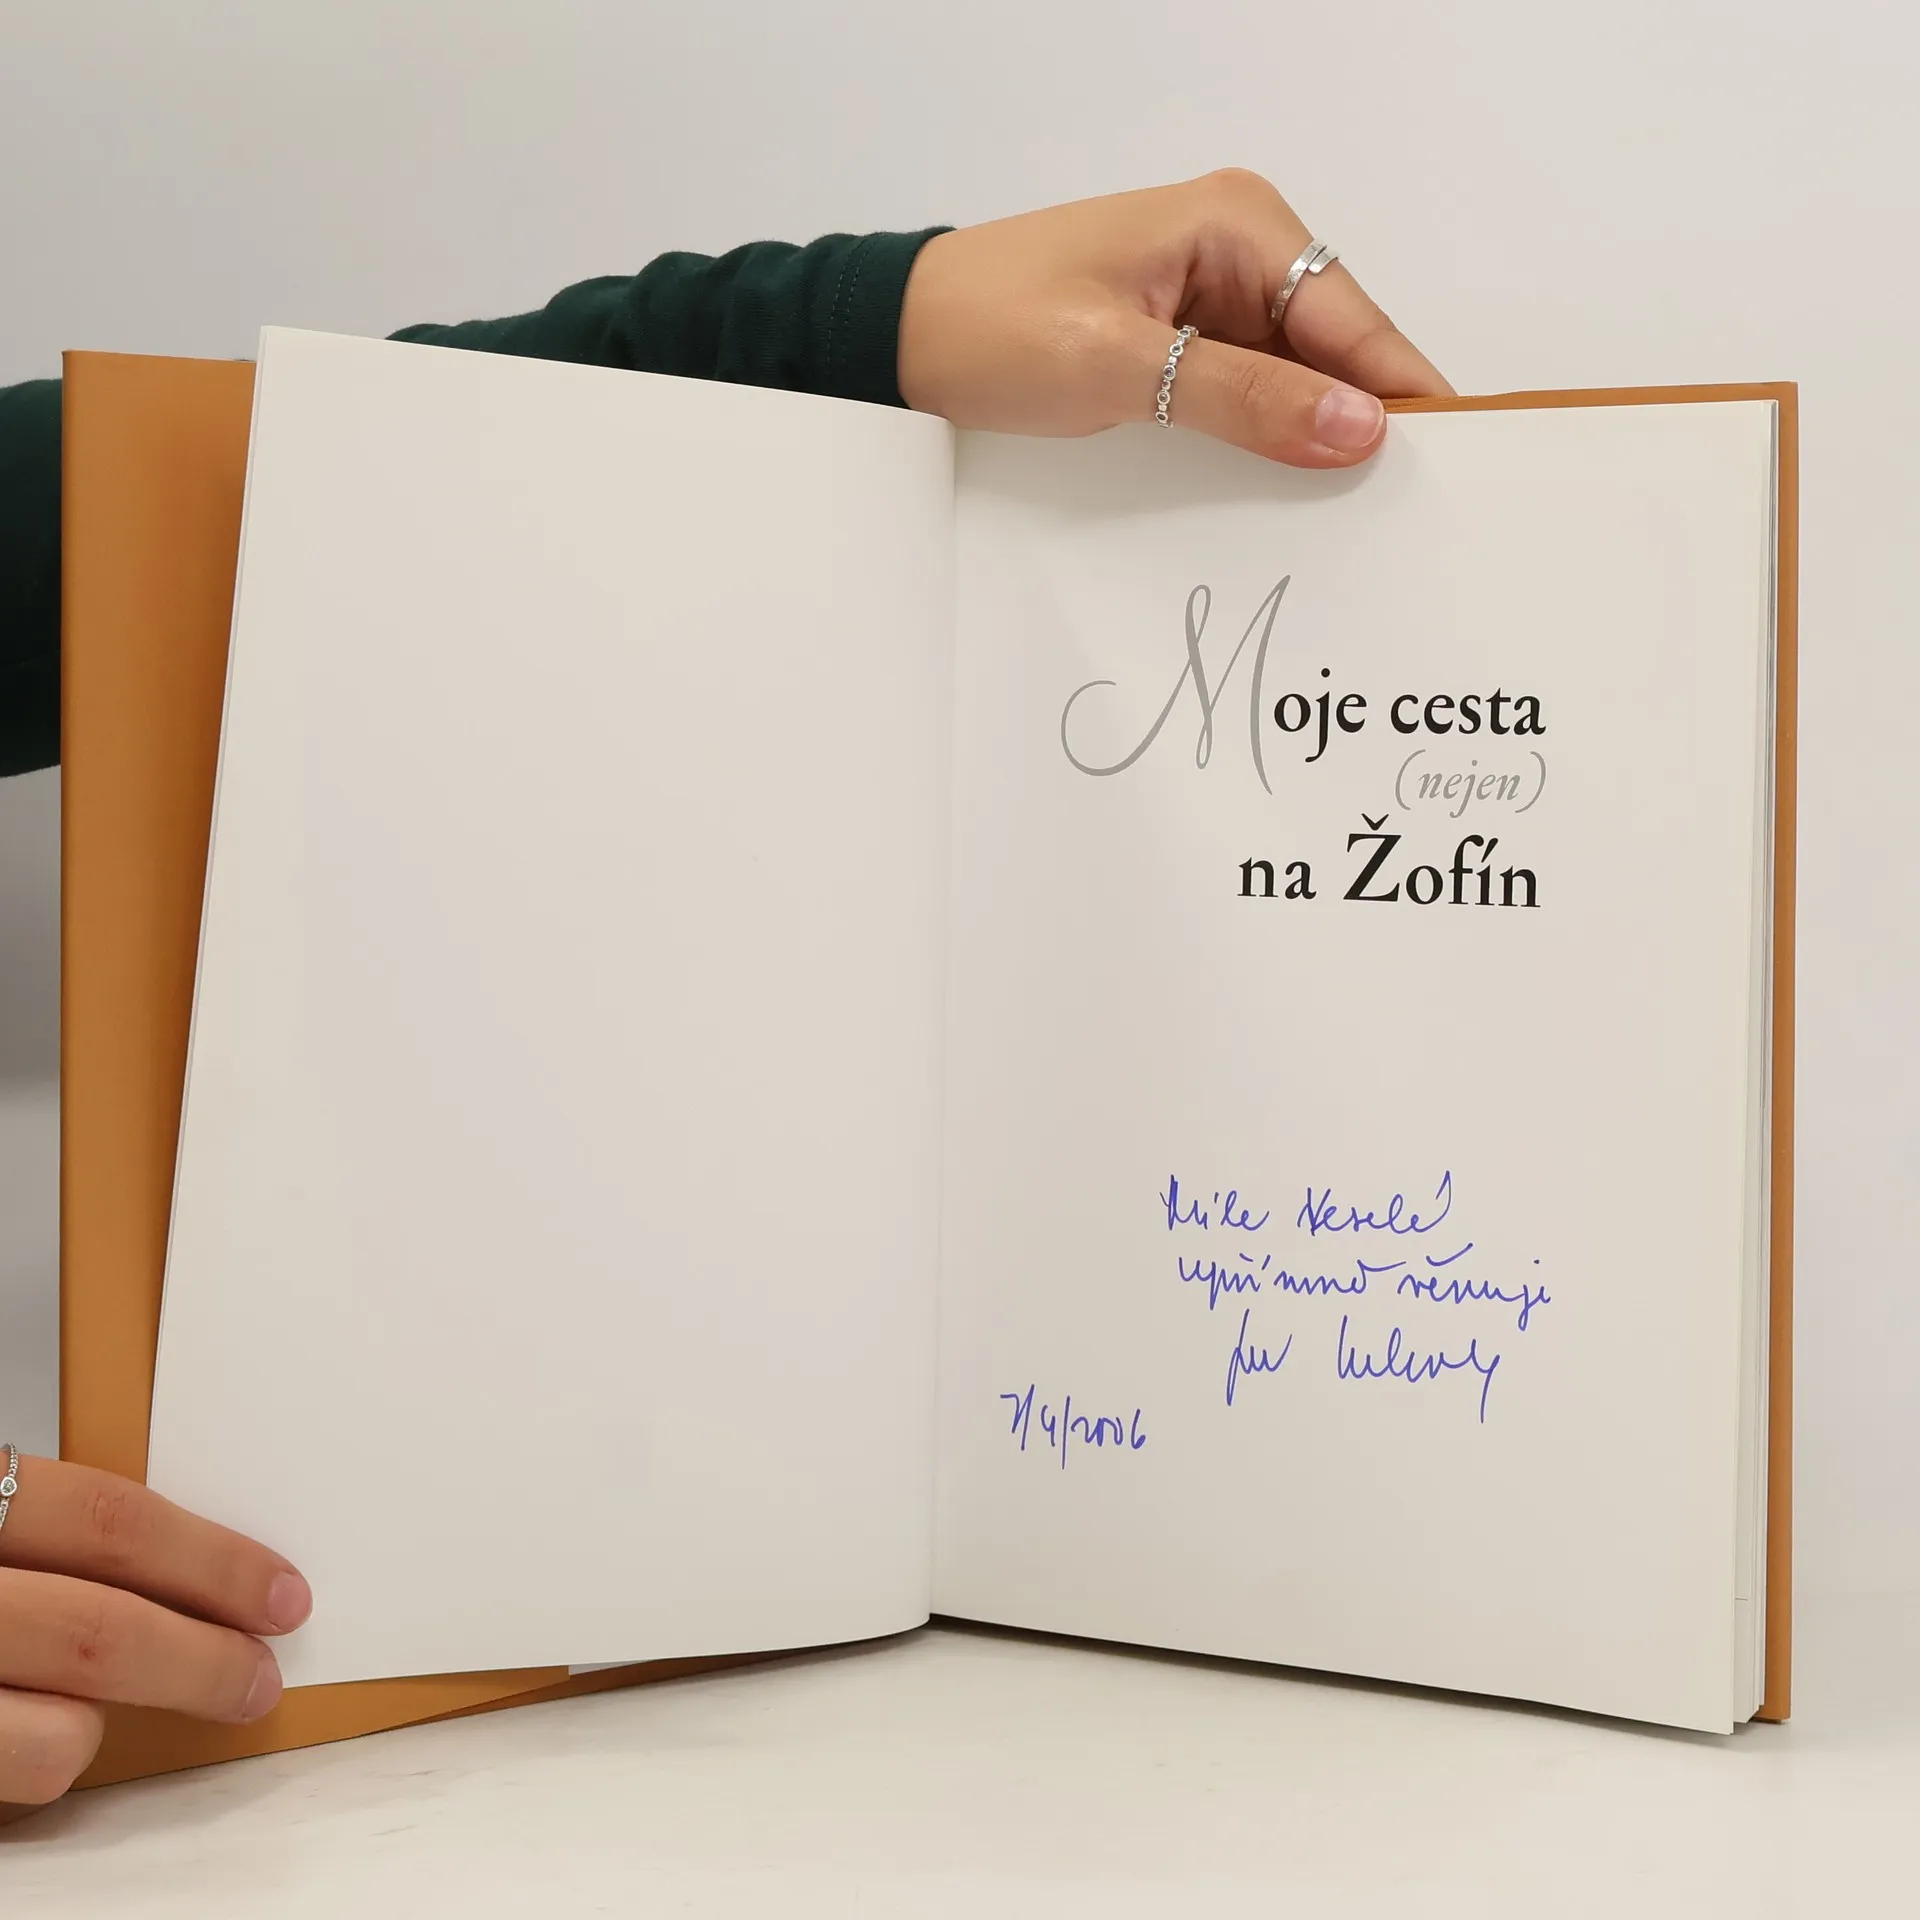 Moje cesta
(nejen)
na Žofín
Míle Veselé
upřímně věnuji
7/4/2006